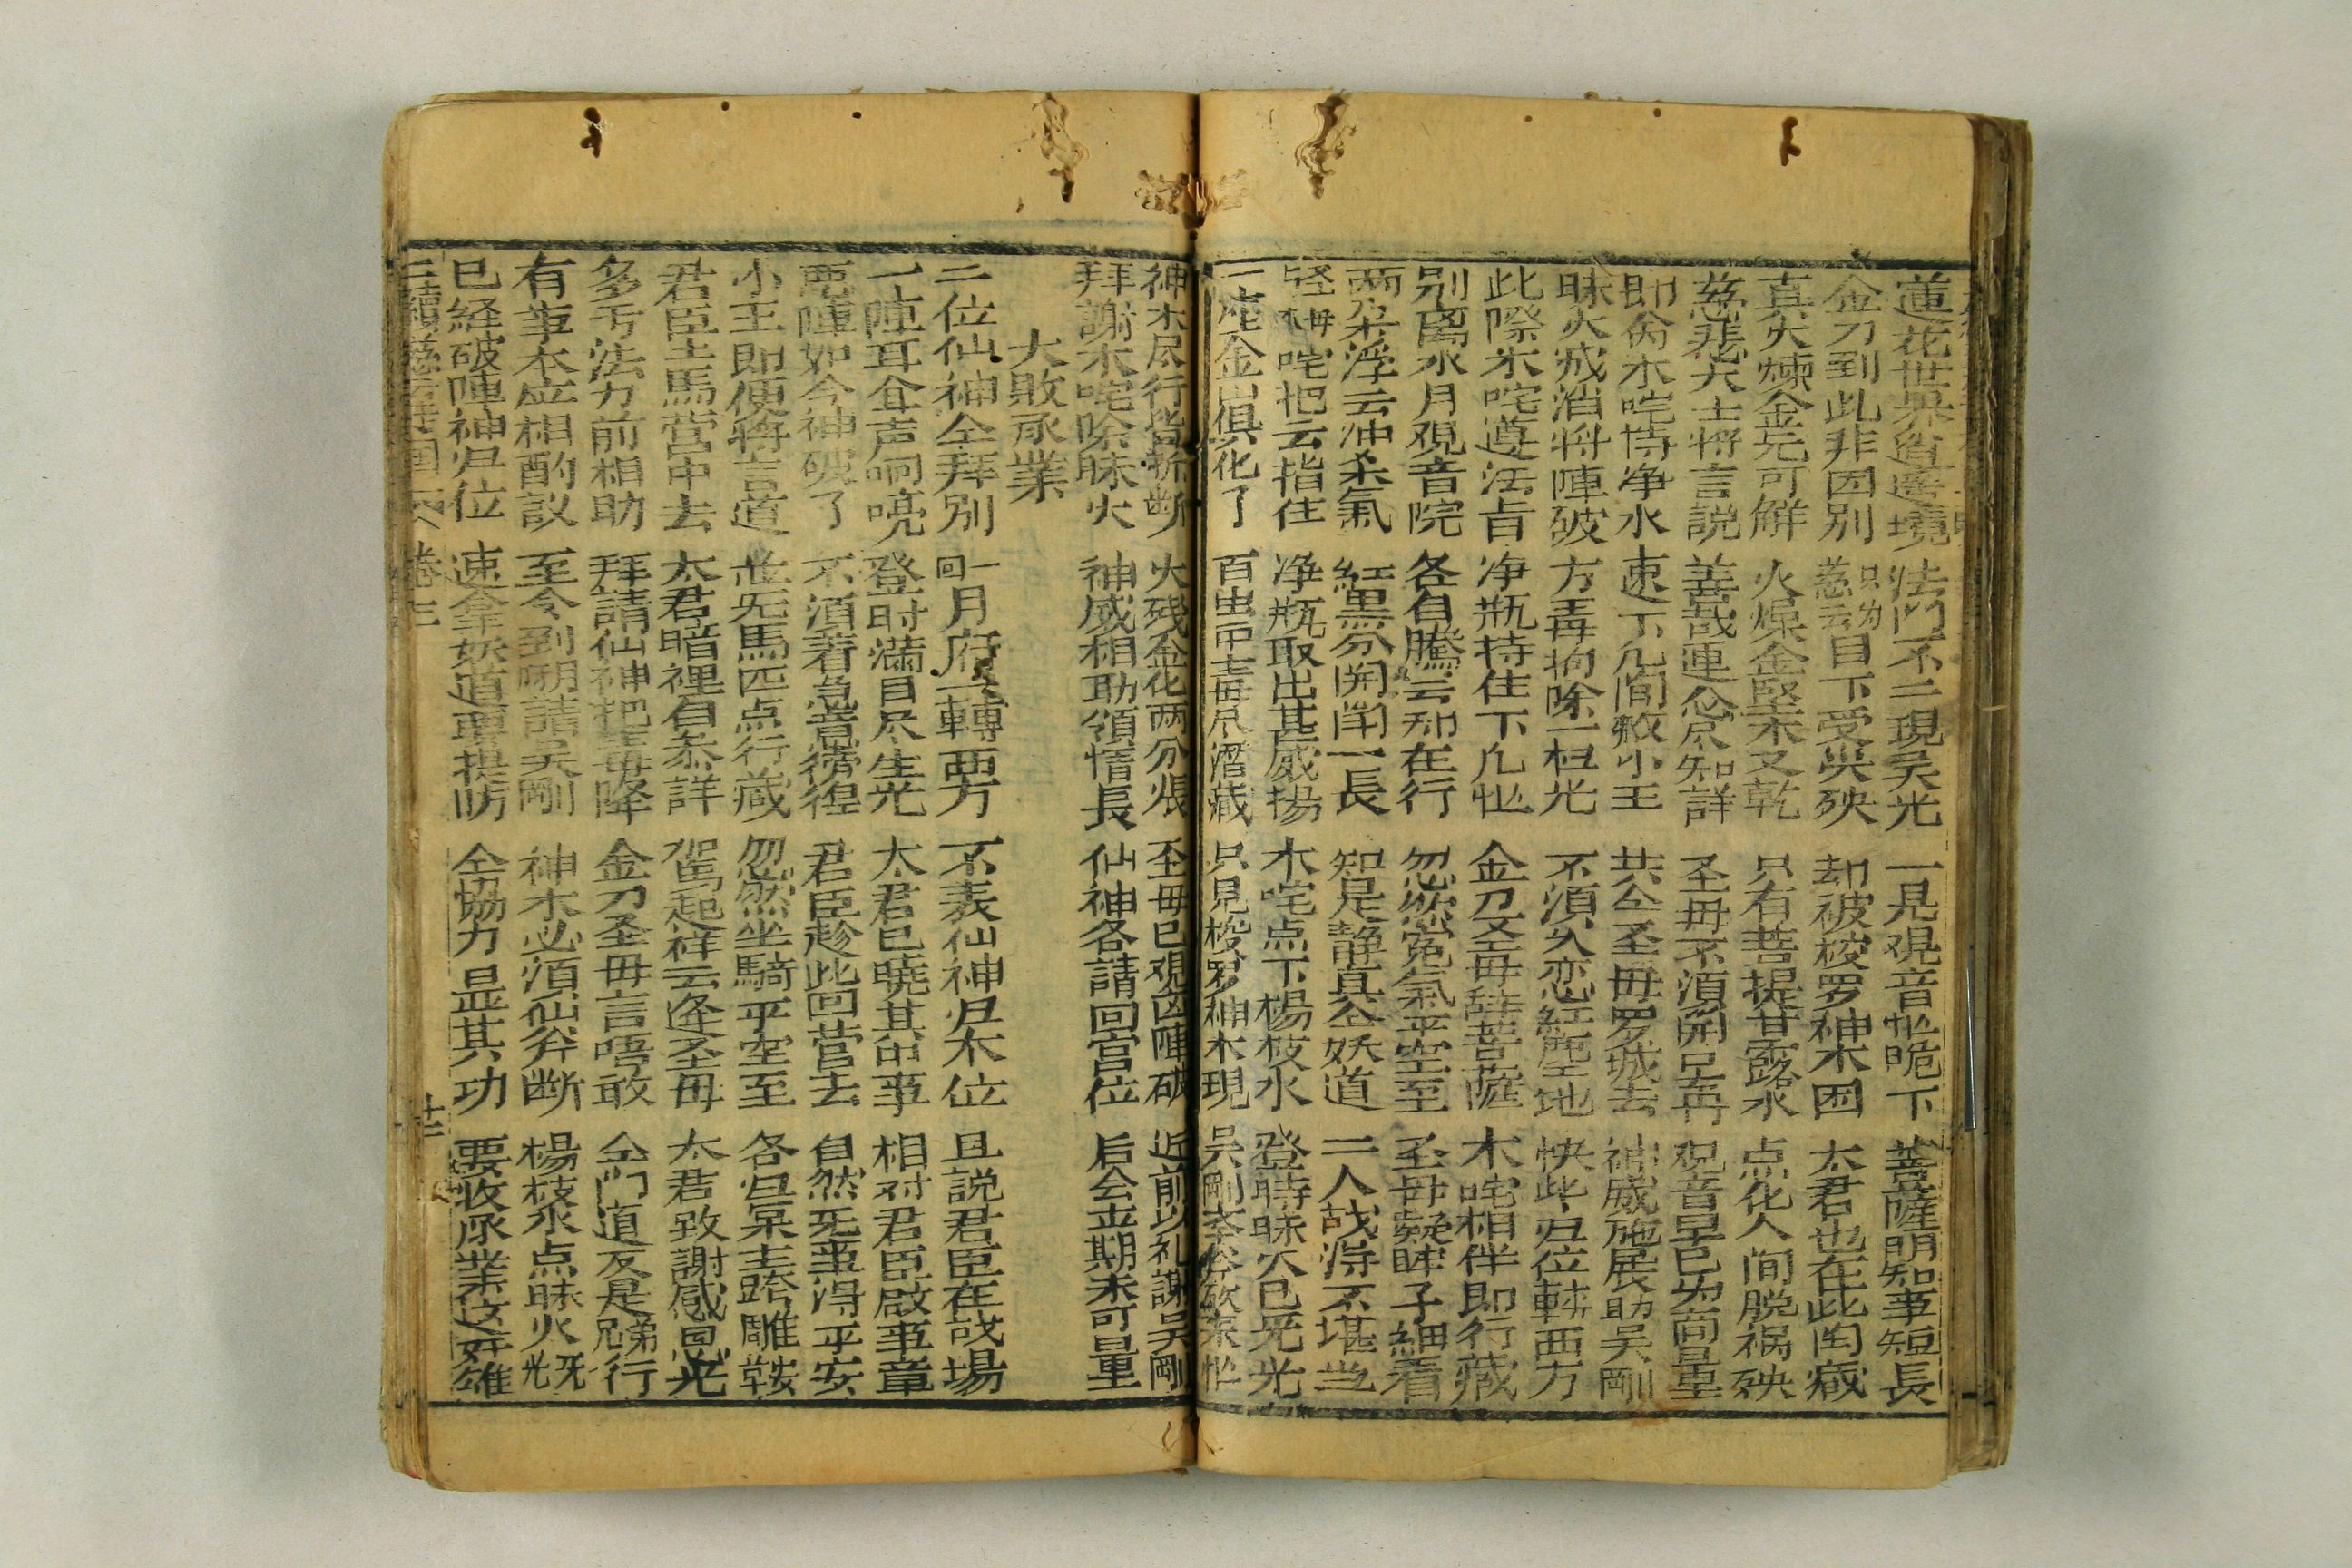 蓮花世界逍遥境 法門不二現吴光 一見观音忙跪下 菩薩明知事短長
金刀到此非因别 只为慈云目下受灾殃 却被梭罗神木困 太君也在此閗癥
真火煉金先可觧 火燥金堅木又乾 只有菩提甘露水 点化人间脱祸殃
慈悲大士将言説 善哉連忿尽知詳 圣毋不湏開口再 观音早已为商量
即命木咤恃净水 速下凡间救小王 共仝圣毋罗城去 神威施展助吴剛
昧火戒消将陣破 方再拘除一枉光 不湏久恋紅塵地 快此归位轉西方
此際木咤遵法旨 净瓶持住下凡忙 金刀圣毋辞菩薩 木咤相伴即行藏
别离水月观音院 各自腾云却在行 忽然冤氣平空至 圣毋凝眸子細看
两朵浮云冲杀氣 紅黑分開閗一長 知是静真仝妖道 二人战淂不堪当
圣毋咤把云指住 净瓶取出甚威扬 木咤点下楊枝水 登時昧火已无光
一座金山俱化了 百虫吊毒毋尽潛藏 只見梭罗神木現 吴剛茶斧砍來忙
神木尽行皆折断 火残金化两分張 圣毋已观囚陣破 近前以礼謝吴剛
拜謝木咤除昧火 神威相助領情長 仙神各請回宫位 后会立期未可量
大敗承業
二位仙神仝拜别 一回月府一轉西方 不表仙神归本位 且説君臣在战場
一陣耳仝声响亮 登时满目尽生光 太君已曉其中事 相对君臣啟事章
惡陣如今神破了 不湏着急意徬徨 君臣趁此回营去 自然无事淂平安
小王即便将言道 並无馬匹点行藏 忽然坐騎平空至 各归呆主跨雕鞍
君臣上馬营中去 太君暗裡自叅詳 駕起祥云逢圣毋 太君致謝感恩光
多亏法力前相助 拜請仙神把毒降 金刀圣毋言唔敢 仝門道友是兄弟行
有事本应相酌議 至令到朝請吴剛 神木必湏仙斧断 楊枝水点昧火无光
已経破陣神归位 速拿妖道要提防 仝協力 显其功 要收承業这奸雄
三續慈云走國 卷三 十二